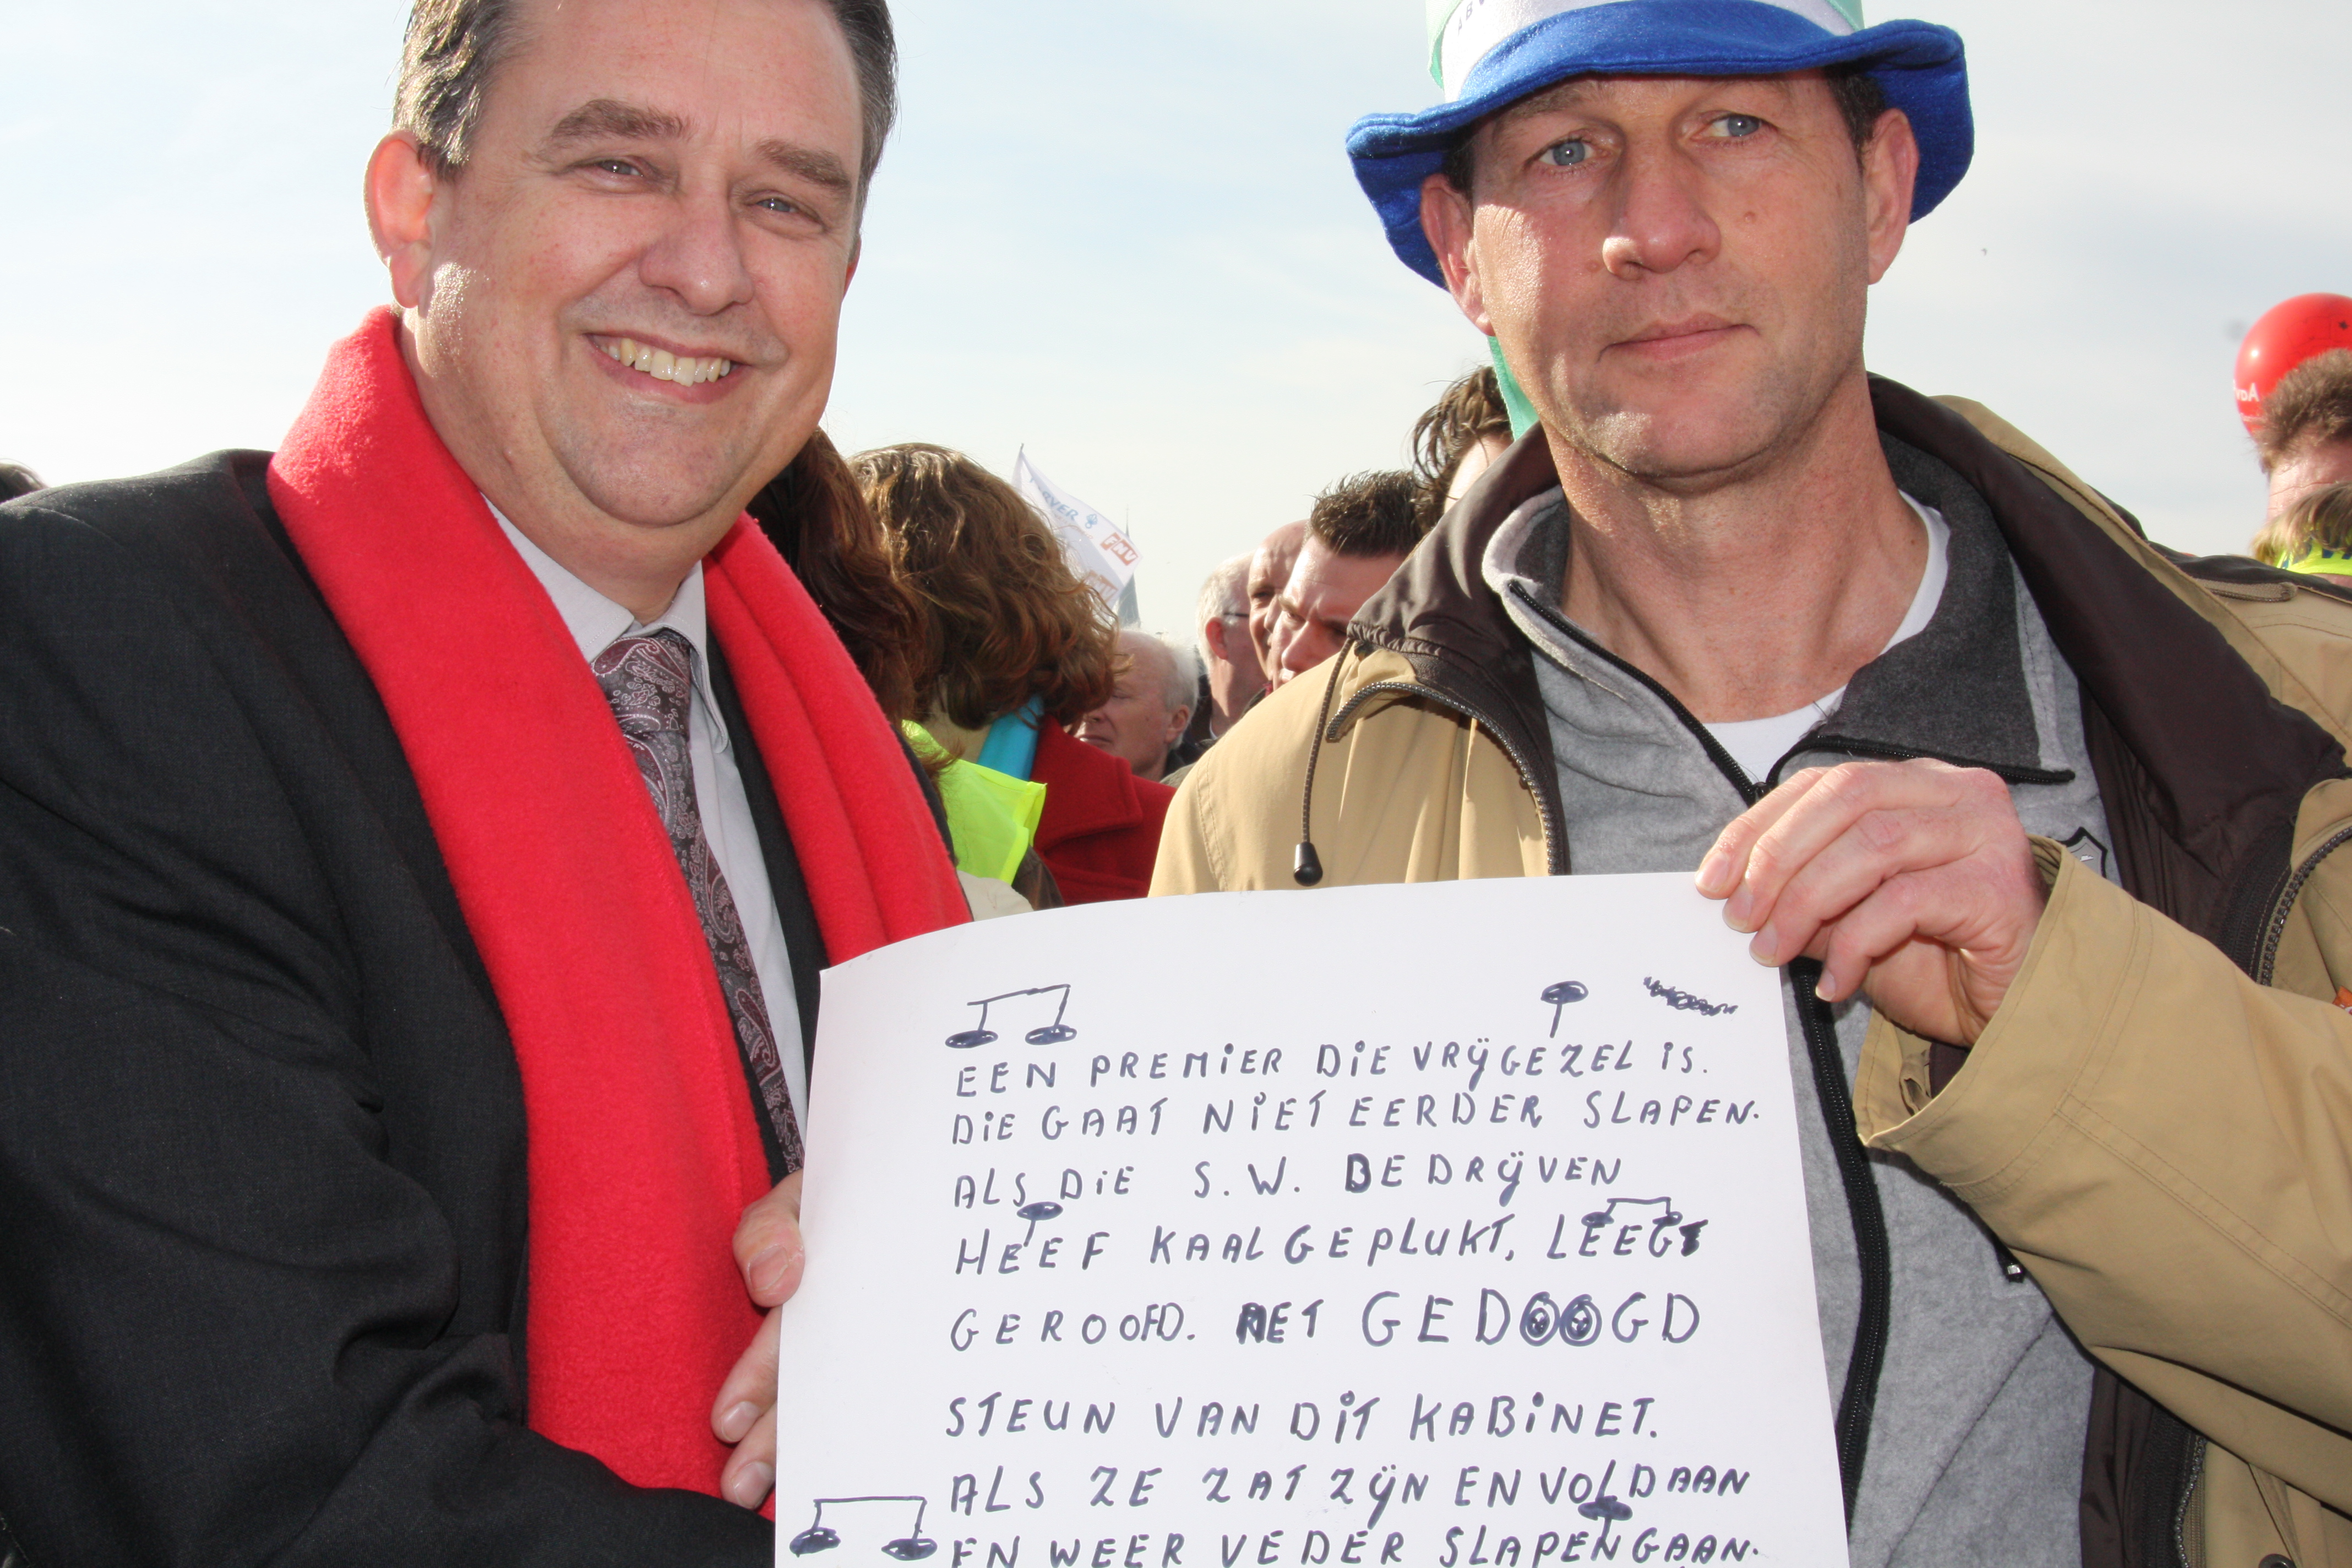 EEN PREMIER DIE VRIJGEZEL IS.
DIE GAAT NIET EERDER SLAPEN.
ALS DIE S.W. BEDRIJVEN
HEEF KAAL GEPLUKT, LEEG
GEROOFD. MET GEDOOGD
STEUN VAN DIT KABINET.
ALS ZE ZAT ZIJN EN VOLDAAN
EN WEER VEDER SLAPEN GAAN.
FNV